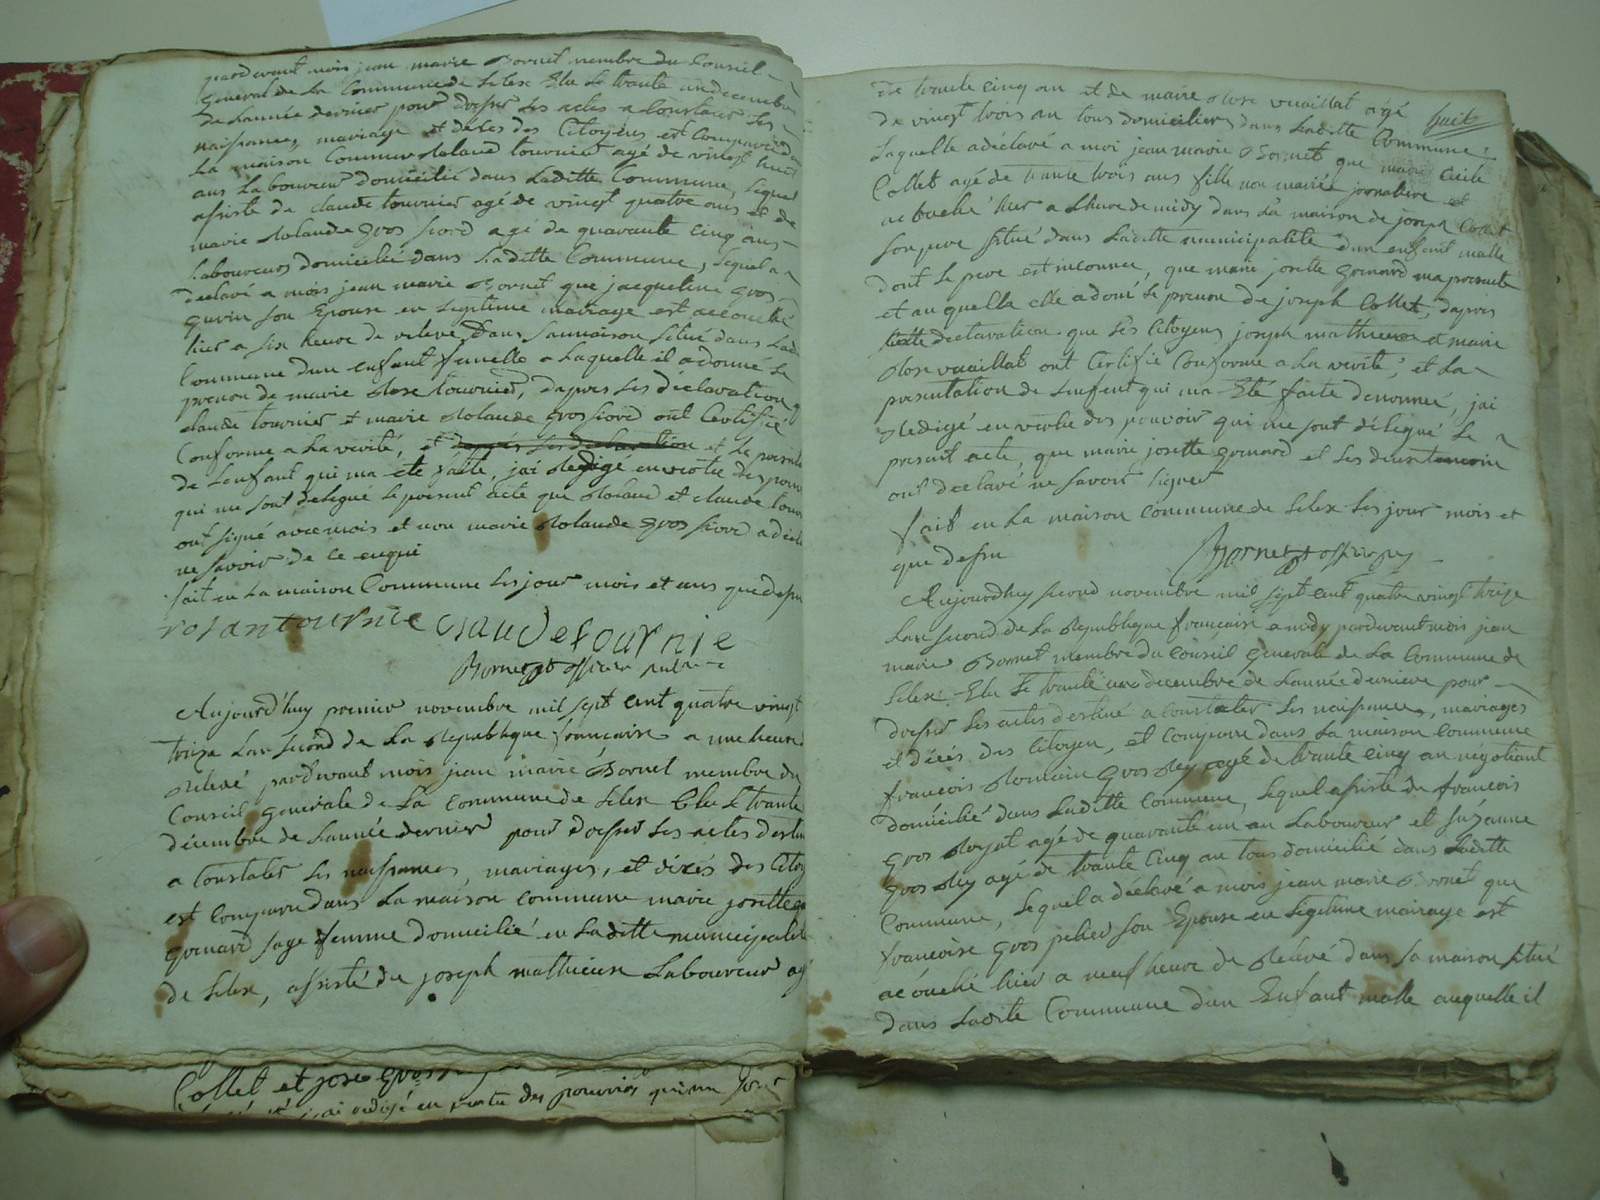 pardevant mois jean marie Bornet membre du Conseil
General de La Commune de Lelex Elu Le trante un decembre
de Lannée dernier pour dresser Les actes a Constater Les
naissances, mariage et deses des Citoyens est Comparu dans
La maison Commune Roland tournier agé de vingt huit
ans Laboureur domicilié dans Laditte Commune, Lequel
assisté de claude tournier agé de vingt quatre ans et de
marie Rolande gros fiord agé de quarante cinq ans
Laboureurs domicilié dans Laditte Commune, Lequel a
déclaré a mois jean marie Bornet que jacqueline gros
gurin son Epouse en Legitime mariage est accouché
hier a six heure de relevé dans sa maison situé dans Lad
Commune dun enfant femelle a Laquelle il a donné Le
prenon de marie Rose tournier, dapres Les déclaration q
claude tournier et marie Rolande gros fiord ont Certifié
Conforme a La verité, et dapres Les declaration et La presenta
de Lenfant qui ma ete faitte, jai Redigé en vertu des pouv
qui me sont delegué Le present acte que Roland et claude tour
ont signé avec mois et non marie Rolande gros fiord a décla
ne savoir de ce enqui
fait en La maison Commune Les jour mois et ans que dessu
rolan tournie claude tournie
Bornet officier public
Aujourd'huy premier novembre mil sept cent quatre vingt
treize Lan second de La Republique francaise a une heure
Relevé pardevant mois jean marie Bornet membre du
Conseil generale de La commune de Lelex Elu Le trante
décembre de Lannée dernier pour dresser Les actes destin
a Constater Les naissances, mariages, et décés des Citoy
est Comparu dans La maison commune marie josette
grenard sage femme domicilié en Laditte municipalité
de Lelex, assisté de joseph mathieux Laboureur agé
Collet et jose gros
jai redigé en vertu des pouvoirs qui me sont
De trante cinq an et de marie Rose vuaillat agé huit
de vingt trois an tous domicilier dans Laditte Commune
Laquelle a déclaré a moi jean marie Bornet que marie cécile
Collet agé de trante trois ans fille non mariée journaliere est
acouché hier a Lheure de midy dans La maison de joseph Collet
son pere situé dans Laditte municipalité dun enfant malle
dont Le pere est inconnu, que marie josette grenard ma presenté
et auquelle elle a doné Le prenon de joseph Collet, dapres
cette declaration que Les Citoyens joseph mathieux et marie
Rose vuaillat ont Certifié Conforme a La verité; et La
presentation de Lenfant qui ma Eté faite denommé, jai
Redigé en vertu des pouvoir qui me sont délegué Le
present acte, que marie josette grenard et Les deux temoin
ont déclaré ne savoir signer
fait en La maison commune de Lelex Les jour mois et
que dessu Bornet officier pu
Aujourdhuy second novembre mil sept cent quatre vingt treize
Lan second de La Republique française a midy pardevant mois jean
marie Bornet membre du Conseil generale de La Commune de
Lelex Elu Le trante un decembre de Lannée derniere pour
dresser Les actes destiné a constater Les naissances, mariages
et décés des Citoyen, et comparu dans La maison commune
francois Romain gros Rey agé de trante cinq an négotiant
domicilié dans Laditte Commune, Lequel assisté de francois
gros Royat agé de quarante un an Laboureur et suzanne
gros Rey agé de trante cinq an tous domicilié dans Laditte
Commune, Lequel a déclaré a mois jean marie Bornet que
francoise gros pelier son Epouse en Legitime mairage est
acouché hier a neuf heure de Relevé dans sa maison situé
dans Ladite Commune dun Enfant malle auquelle il